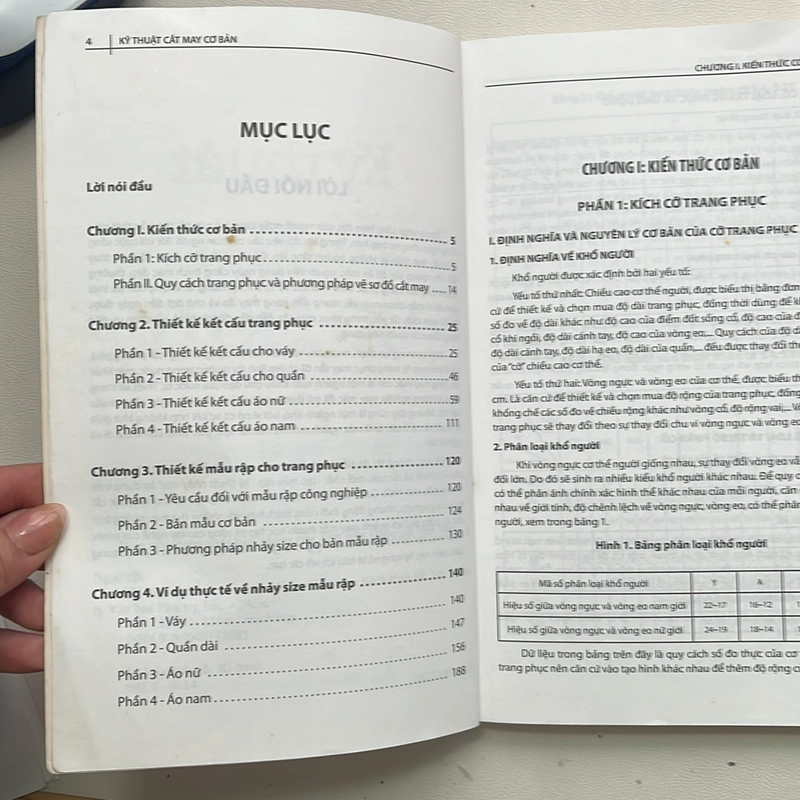 4 KỸ THUẬT CẮT MAY CƠ BẢN
MỤC LỤC
Lời nói đầu
Chương I. Kiến thức cơ bản 5
Phần 1: Kích cỡ trang phục 5
Phần II. Quy cách trang phục và phương pháp vẽ sơ đồ cắt may 14
Chương 2. Thiết kế kết cấu trang phục 25
Phần 1 - Thiết kế kết cấu cho váy 25
Phần 2 - Thiết kế kết cấu cho quần 46
Phần 3 - Thiết kế kết cấu áo nữ 59
Phần 4 - Thiết kế kết cấu áo nam 111
Chương 3. Thiết kế mẫu rập cho trang phục 120
Phần 1 - Yêu cầu đối với mẫu rập công nghiệp 120
Phần 2 - Bản mẫu cơ bản 124
Phần 3 - Phương pháp nhảy size cho bản mẫu rập 130
Chương 4. Ví dụ thực tế về nhảy size mẫu rập 140
Phần 1 - Váy 140
Phần 2 - Quần dài 147
Phần 3 - Áo nữ 156
Phần 4 - Áo nam 188
CHƯƠNG I. KIẾN THỨC CƠ
CHƯƠNG I: KIẾN THỨC CƠ BẢN
PHẦN 1: KÍCH CỠ TRANG PHỤC
I. ĐỊNH NGHĨA VÀ NGUYÊN LÝ CƠ BẢN CỦA CỠ TRANG PHỤC
1. ĐỊNH NGHĨA VỀ KHỔ NGƯỜI
Khổ người được xác định bởi hai yếu tố:
Yếu tố thứ nhất: Chiều cao cơ thể người, được biểu thị bằng đơn
cứ để thiết kế và chọn mua độ dài trang phục, đồng thời dùng để
số đo về độ dài khác như độ cao của điểm đốt sống cổ, độ cao của
cổ khi ngồi, độ dài cánh tay, độ cao của vòng eo,... Quy cách của độ
độ dài cánh tay, độ dài hạ eo, độ dài của quần,... đều được thay đổi
của "cỡ" chiều cao cơ thể.
Yếu tố thứ hai: Vòng ngực và vòng eo của cơ thể, được biểu
cm. Là căn cứ để thiết kế và chọn mua độ rộng của trang phục,
khống chế các số đo về chiều rộng khác như vòng cổ, độ rộng vai,...
trang phục sẽ thay đổi theo sự thay đổi chu vi vòng ngực và vòng eo
2. Phân loại khổ người
Khi vòng ngực cơ thể người giống nhau, sự thay đổi vòng eo
đổi lớn. Do đó sẽ sinh ra nhiều kiểu khổ người khác nhau. Để quy
có thể phản ánh chính xác hình thể khác nhau của mỗi người, căn
nhau về giới tính, độ chênh lệch về vòng ngực, vòng eo, có thể phân
người, xem trong bảng 1.
Hình 1. Bảng phân loại khổ người
Mã số phân loại khổ người Y A
Hiệu số giữa vòng ngực và vòng eo nam giới 22–17 16–12
Hiệu số giữa vòng ngực và vòng eo nữ giới 24–19 18–14
Dữ liệu trong bảng trên đây là quy cách số đo thực của cơ
trang phục nên căn cứ vào tạo hình khác nhau để thêm độ rộng